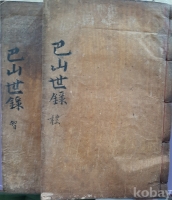 巴山世錄
巴山世錄
kobay